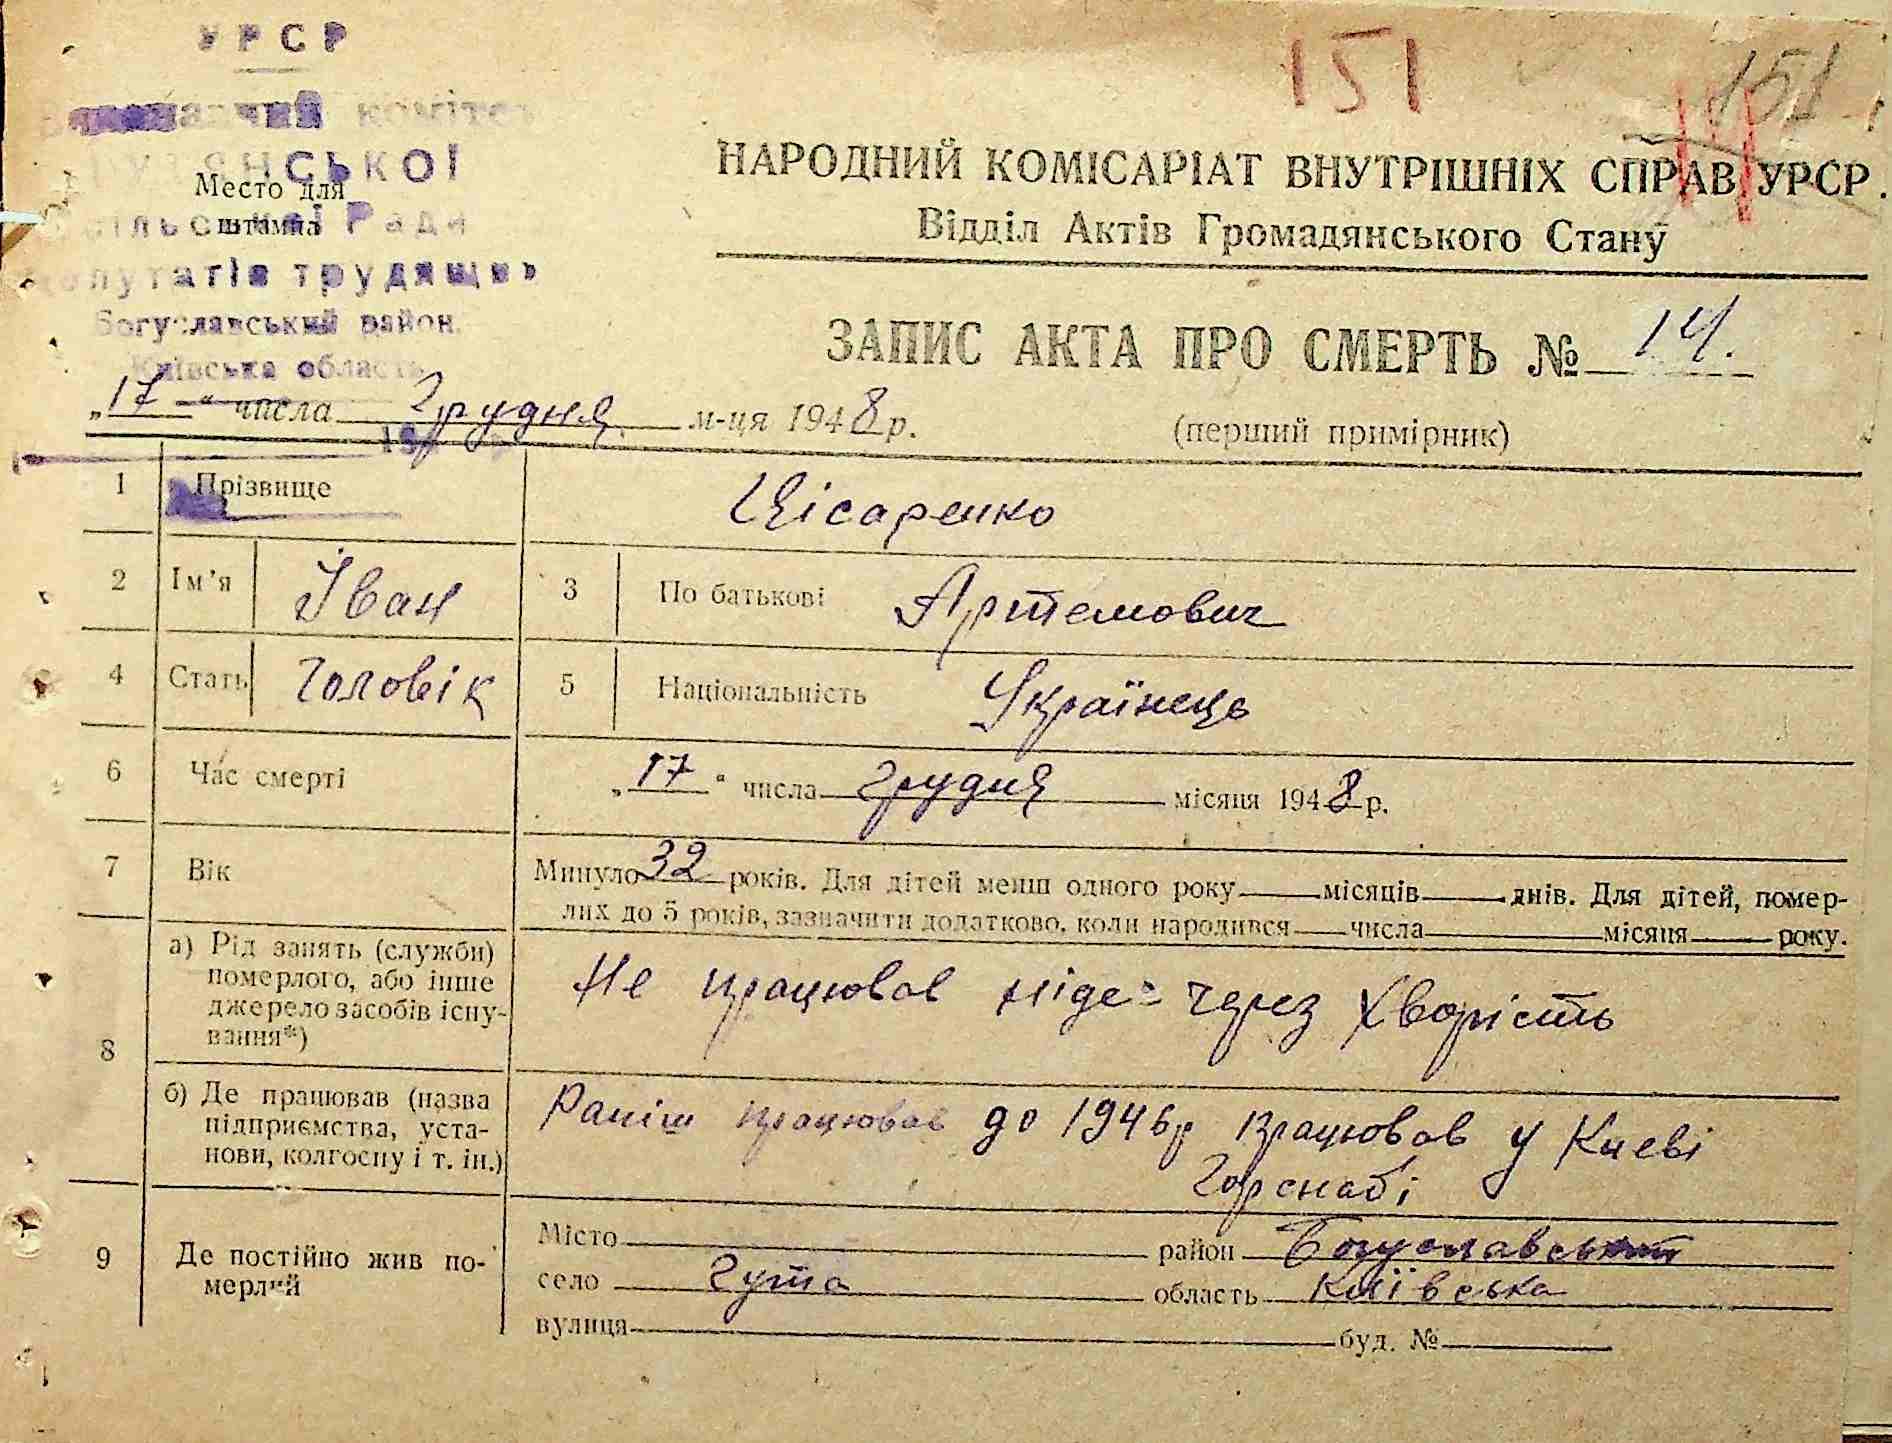 УРСР
комітет
Место для
штампа
сільської Ради
депутатів трудящих
Богуславський район
Київська область
151
151
НАРОДНИЙ КОМІСАРІАТ ВНУТРІШНІХ СПРАВ УРСР.
Відділ Актів Громадянського Стану
ЗАПИС АКТА ПРО СМЕРТЬ № 14.
„17“ числа Грудня м-ця 1948 р.
(перший примірник)
1 Прізвище Цісаренко
2 Ім'я Іван 3 По батькові Артемович
4 Стать Чоловік 5 Національність Українець
6 Час смерті „17“ числа грудня місяця 1948 р.
7 Вік Минуло 32 років. Для дітей менш одного року місяців днів. Для дітей, помер-
лих до 5 років, зазначити додатково, коли народився числа місяця року.
8 а) Рід занять (служби)
померлого, або інше
джерело засобів існу-
вання*)
Не працював ніде через хворість
б) Де працював (назва
підприємства, уста-
нови, колгоспу і т. ін.)
Раніш працював до 1946р працював у Києві
Горснабі
9 Де постійно жив по-
мерлий
Місто район Богуславський
село Гута область Київська
вулиця буд. №